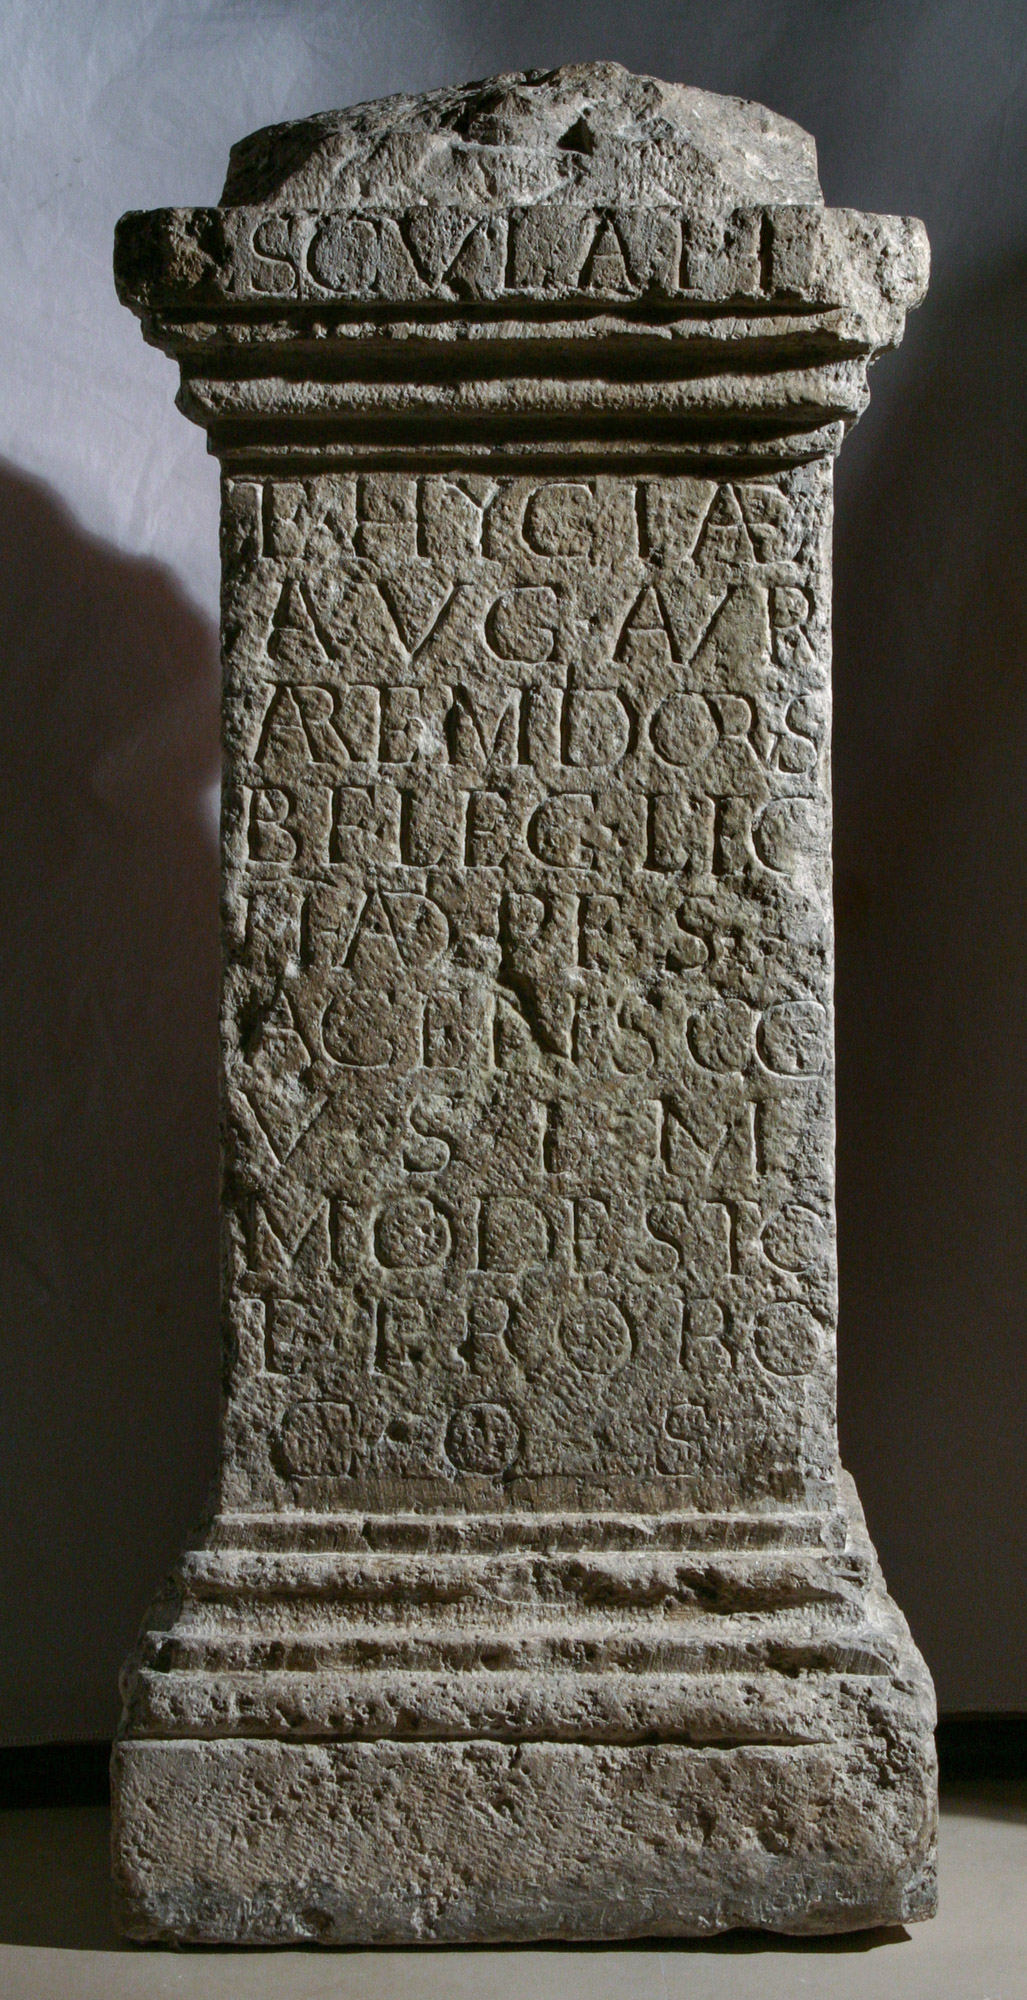 SCVLAPI
ET HYGIAE
AVG AVR
ARTEMIDORS
BF LEG LEG
II AD P F S
AGENS CC
V S L M
MODESTO
ET PROBO
COS